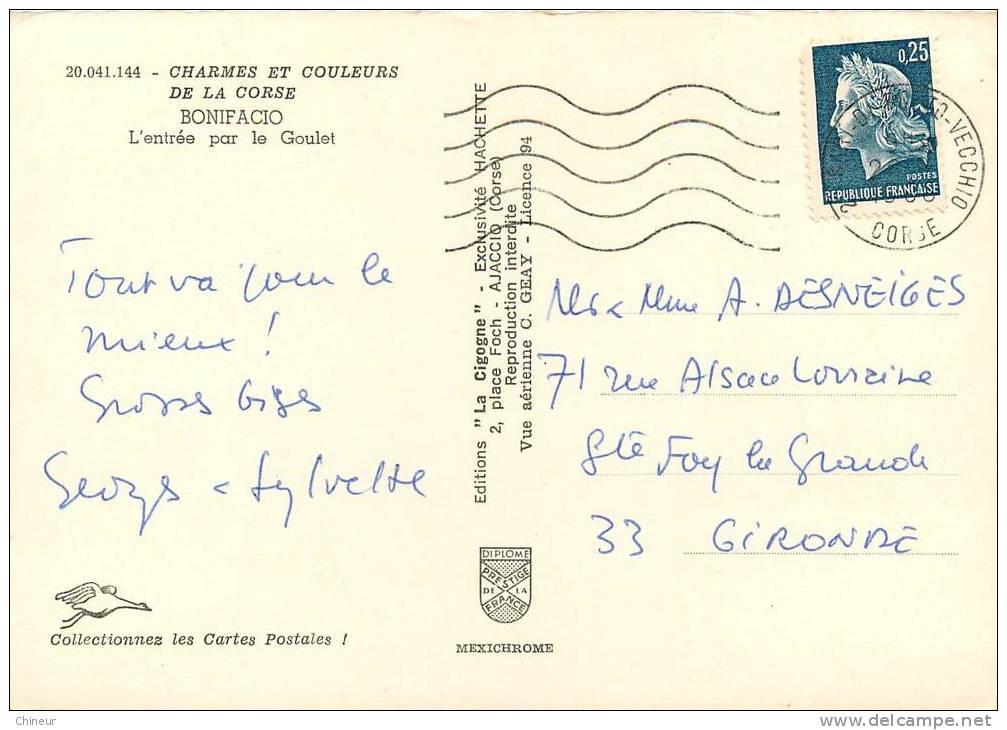 20.041.144 - CHARMES ET COULEURS
DE LA CORSE
BONIFACIO
L'entrée par le Goulet
Tout va pour le
mieux !
Grosses bises
Georges & Sylvette
Collectionnez les Cartes Postales !
Editions "La Cigogne" - Exclusivité HACHETTE
2, place Foch - AJACCIO (Corse)
Reproduction interdite
Vue aérienne C. GEAY - Licence 94
DIPLOME
PRESTIGE
DE LA
FRANCE
MEXICHROME
0,25
POSTES
REPUBLIQUE FRANÇAISE
TO-VECCHIO
CORSE
Mr & Mme A. DESNEIGES
71 rue Alsace Lorraine
Ste Foy la Grande
33 GIRONDE
Chineur
delcampe.net